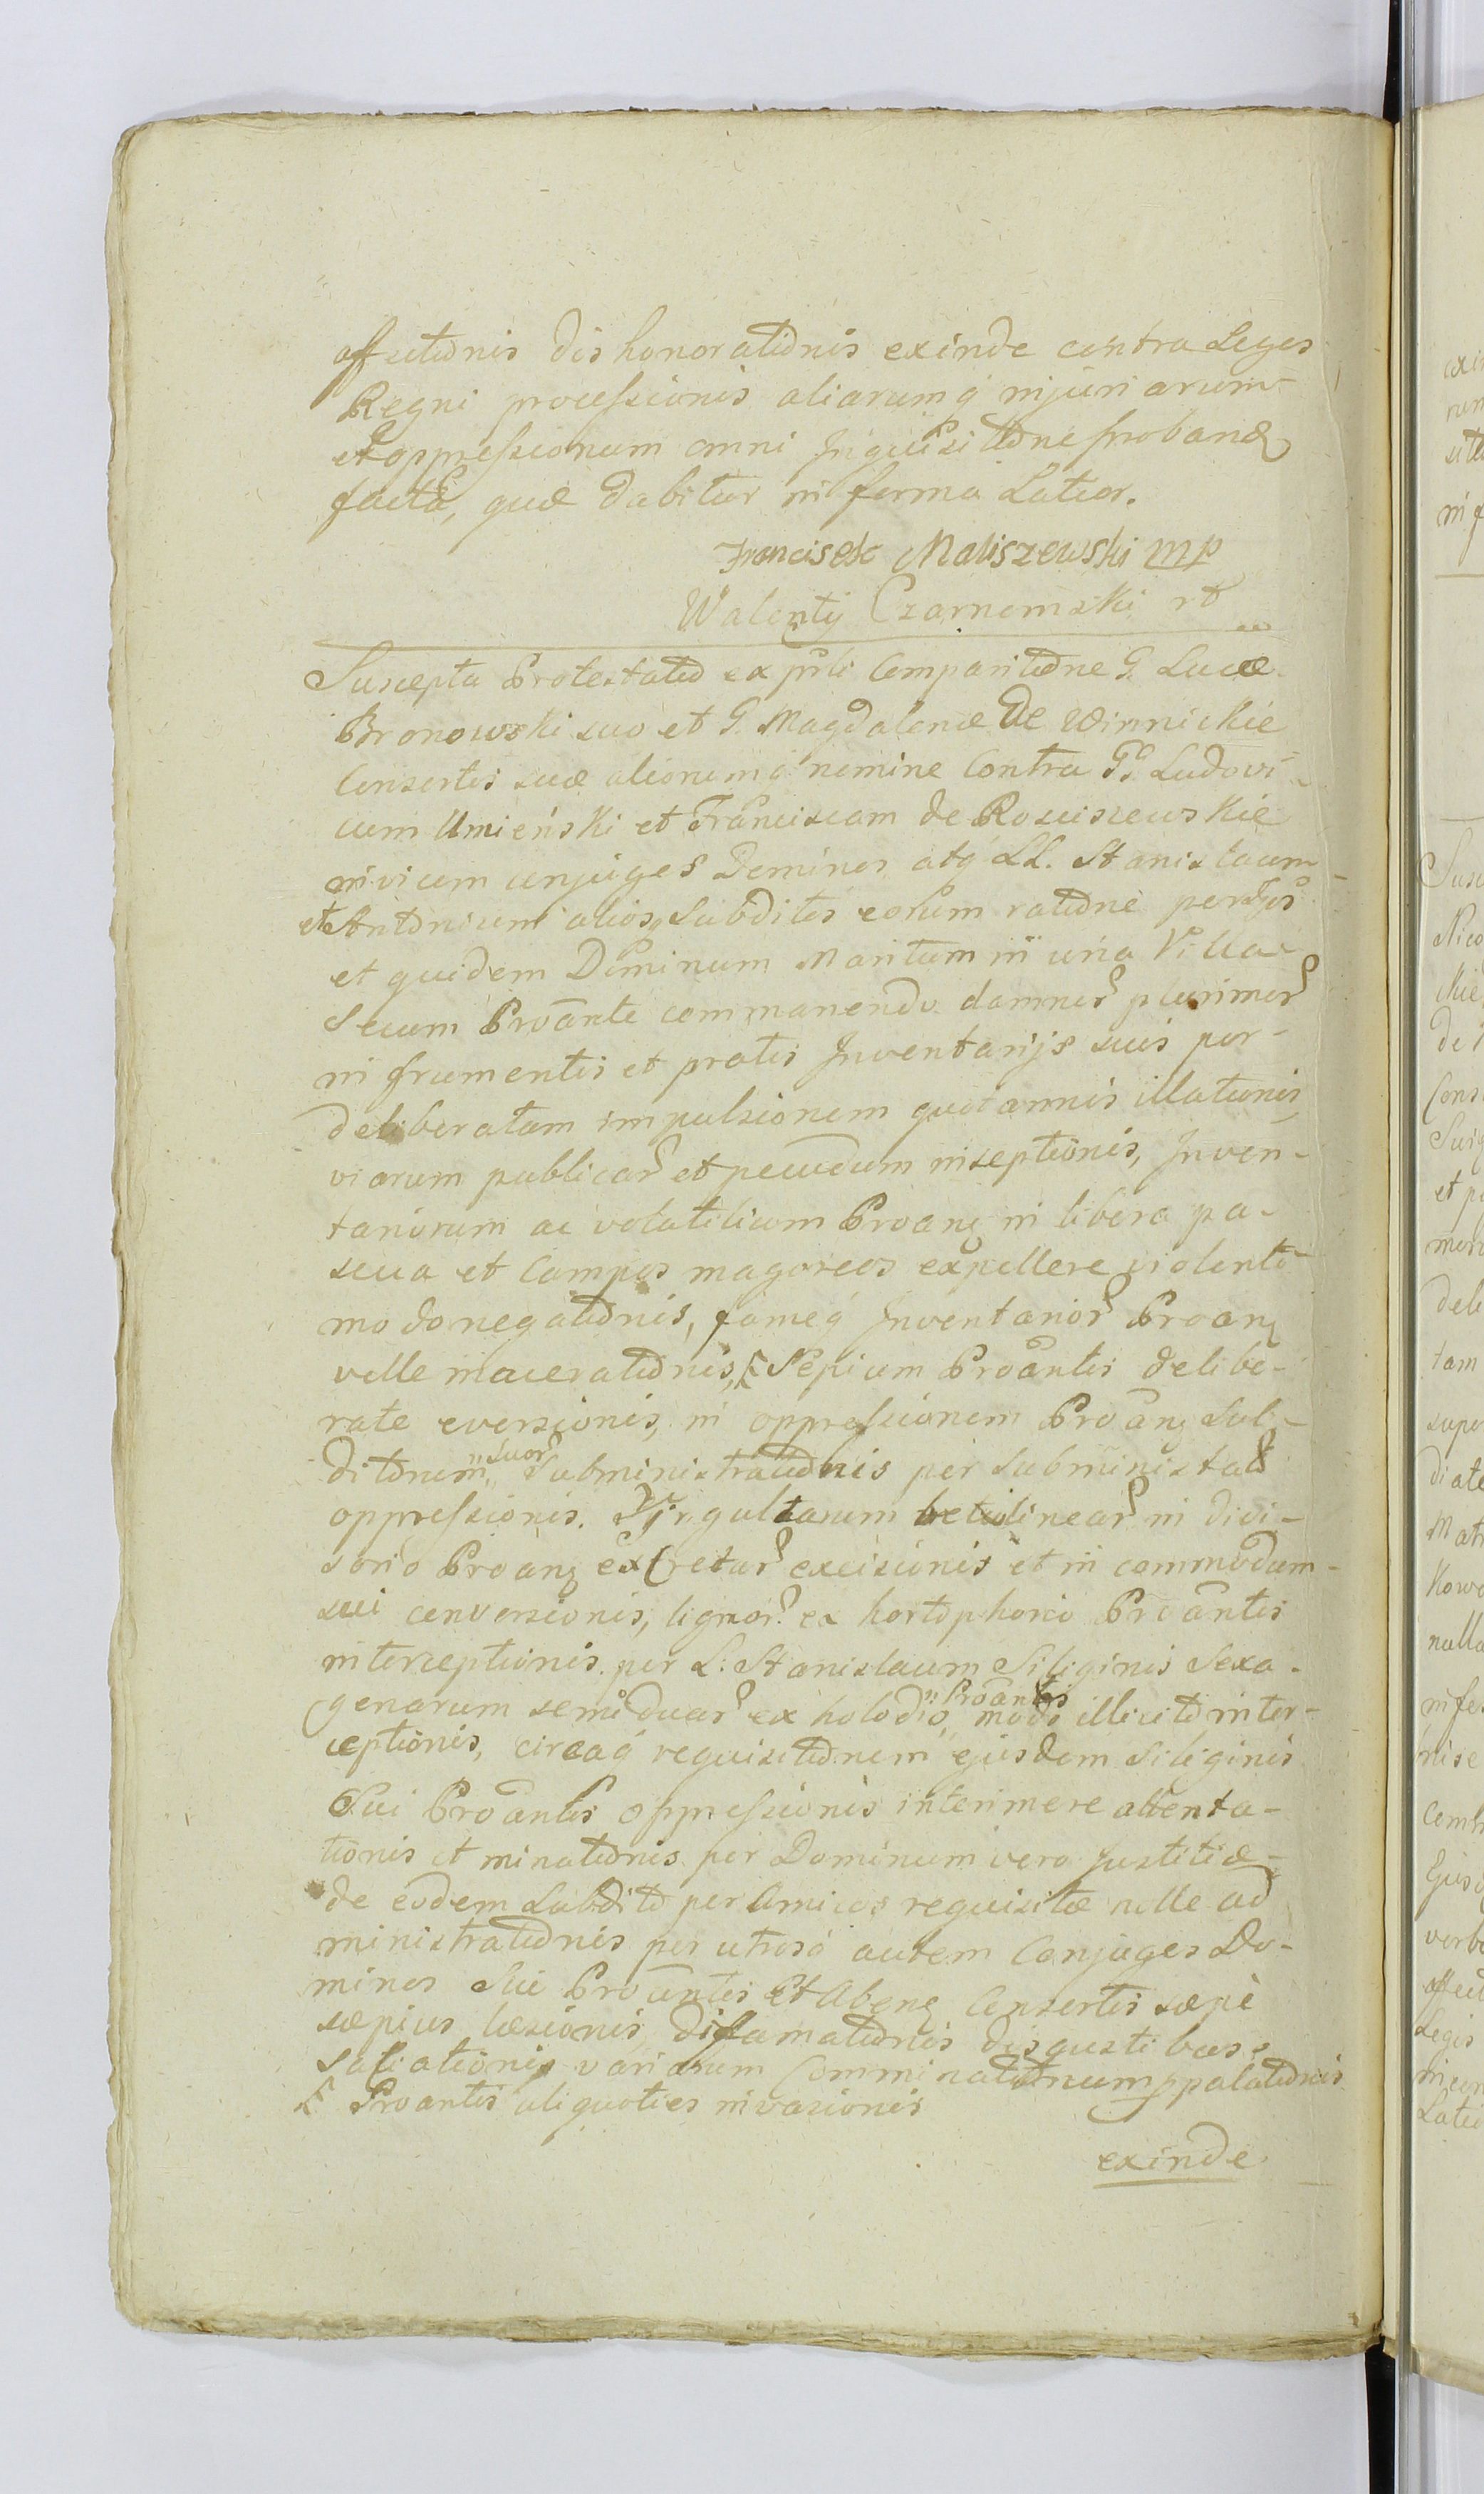 affectionis dishonorationis exinde contra Leges
Regni processionis aliarumq́ injuriarum
et oppressionum omni Inquisitione proband
facta, quæ dabitur in forma Latior.
Francisek Maliszewski mp
Walenty Czarnomski
Suscepta Protestatio ex prli Comparitione G. Lucæ
Bronowski suo et G. Magdalenæ De Winnickie
Consortis suæ aliorumq́ nomine Contra GG. Ludovi-
cum Umieński et Franciscam de Rosciszewskie
invicem conjuges Dominos atq́ LL. Stanislaum
et Antonium aliosq Subditos eorum ratione per Ipsos
et quidem Dominum Maritum in una Villa
secum Proante commanendo damnor plurimor
in frumentis et pratis Inventarijs suis per
deliberatam impulsionem quotannis illationis
viarum publicar et pecudum inseptionis, Inven-
tariorum ac volatilium Proan in libera pa-
scua et Campos magoreos expellere violento
modo negationis, fameq́ Inventarior Proan
velle macerationis, Sepium Proantis delibe-
rate eversionis, in oppressionem Proan Sub-
ditorum suor Subministrationis per Subminista
oppressionis. Virgultarum betulinear in divi-
sorio Proan excretar excisionis et in commodum
sui conversionis, lignor ex hortophorio Proantis
interceptionis per L: Stanislaum Siliginis Sexa-
genarum semiduar ex holodio Proantis modo illicito inter-
ceptionis, circaq́ requisitionem ejusdem Siliginis
Sui Proantis oppressionis interimere attenta-
tionis et minationis per Dominum vero Justitiæ
de eodem Subdito per Amicos requisitæ nolle ad
ministrationis per utrosq́ autem Conjuges Do-
minos Sui Proantis et Consortis sæpe
sæpius læsionis, difamationis
variarum Comminationum ppalationis
Proantis aliquoties invasionis
exinde